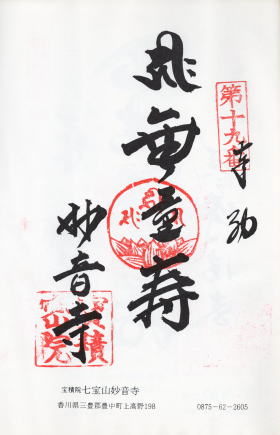 第十九番
奉納
無量寿
妙音寺
宝積院
宝積院 七宝山妙音寺
香川県三豊郡豊中町上高野198 0875-62-2605